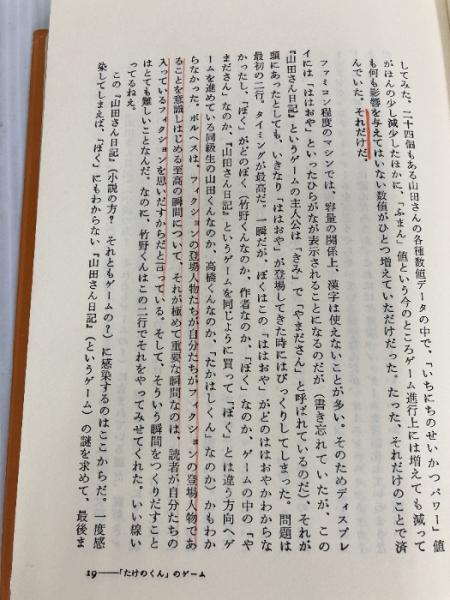 してみた。二十四個もある山田さんの各種数値データの中で、「いちにちのせいかつパワー」値
がほんの少し減少したほかに、「ふまん」値という今のところゲーム進行上には増えても減って
も何も影響を与えてはいない数値がひとつ増えていただけだった。たった、それだけのことで済
んでいた。それだけだ。
ファミコン程度のマシンでは、容量の関係上、漢字は使えないことが多い。そのためディスプレ
イには「ははおや」といったひらがなが表示されることになるのだが（書き忘れていたが、この
『山田さん日記』というゲームの主人公は「きみ」で「やまださん」と呼ばれているのだ）、それが
頭にあったとしても、いきなり「ははおや」が登場してきた時にはびっくりしてしまった。問題は
最初の二行。タイミングが最高だ。一瞬だが、ぼくはこの「ははおや」がどのははおやかわからな
かったし、「ぼく」がどのぼく（竹野くんなのか、作者なのか、「ぼく」なのか、ゲームの中の『や
まださん』なのか、『山田さん日記』というゲームを同じように買って「ぼく」とは違う方向へゲ
ームを進めている同級生の山田くんなのか、高橋くんなのか、「たかはしくん」なのか）かもわか
らなかった。ボルヘスは、フィクションの登場人物たちが自分たちがフィクションの登場人物であ
ることを意識しはじめる至高の瞬間について、それが極めて重要な瞬間なのは、読者が自分たちの
入っているフィクションを思いだすからだと言っている。そして、そういう瞬間をつくりだすこと
はとても難しいことなんだ。なのに、竹野くんはこの二行でそれをやってみせてくれた。いい線い
ってるねえ。
この『山田さん日記』（小説の方？　それともゲームの？）に感染するのはここからだ。一度感
染してしまえば、「ぼく」にもわからない『山田さん日記』（というゲーム）の謎を求めて、最後ま
19——「たけのくん」のゲーム